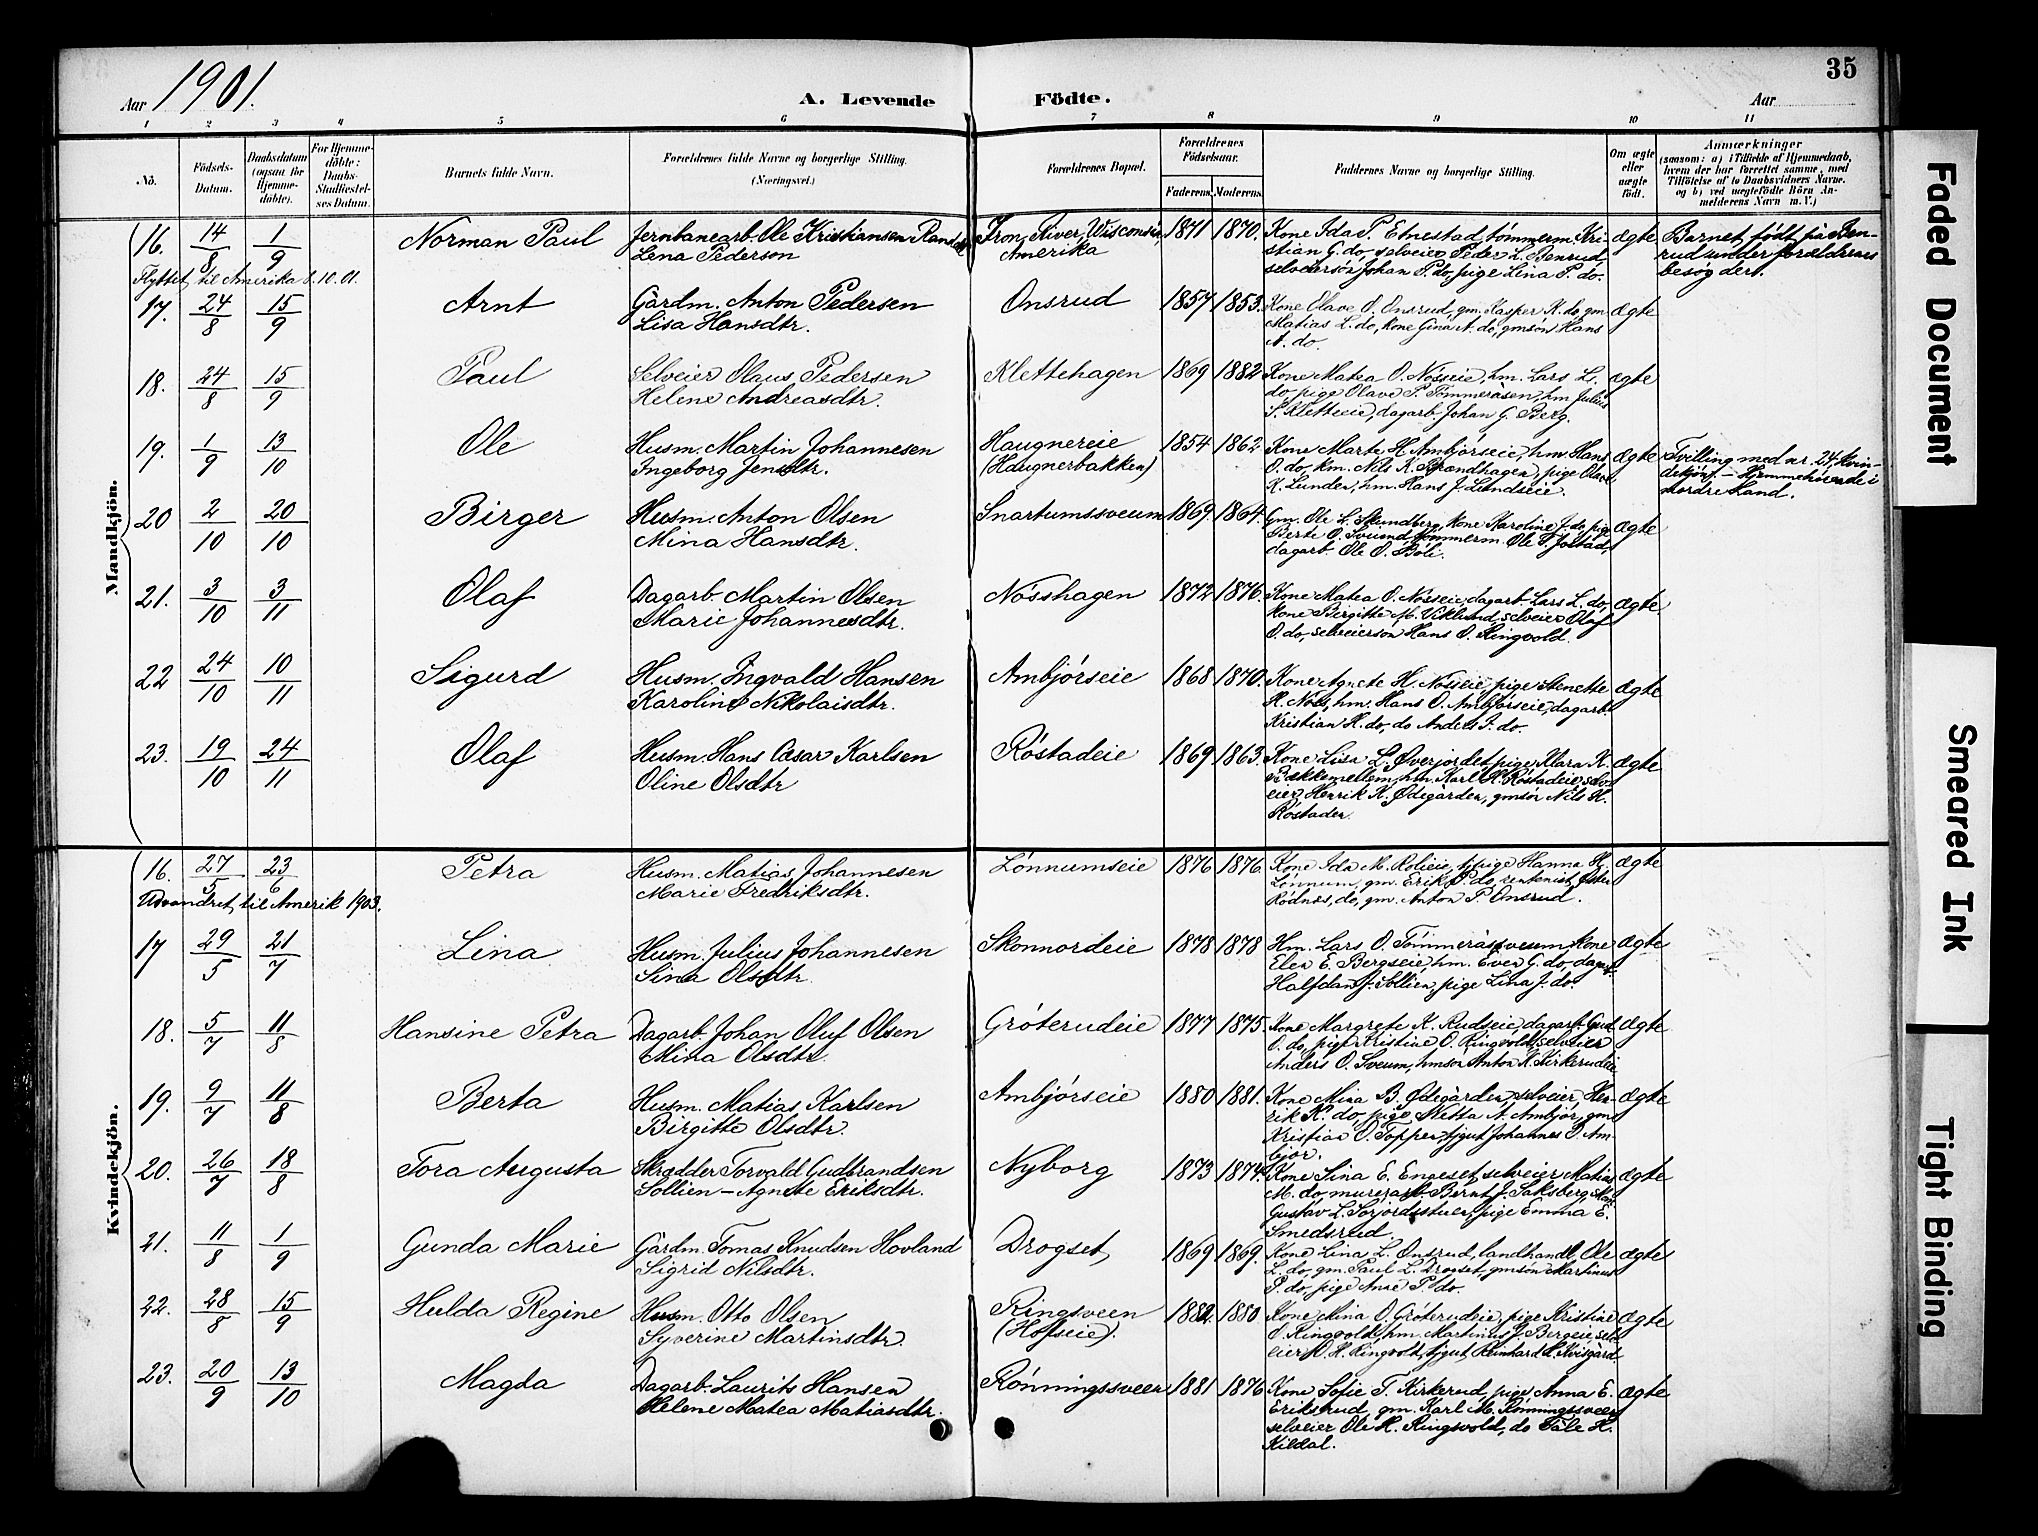 35
Aar 1901.
A. Levende Födte.
Aar
1 2 3 4 5 6 7 8 9 10 11
No.
Födsels-Datum.
Daabsdatum (ogsaa for Hjemmedöbte).
For Hjemmedöbte: Daabs-Stadfæstelses Datum.
Barnets fulde Navn.
Forældrenes fulde Navne og borgerlige Stilling. (Næringsvei.)
Forældrenes Bopæl.
Forældrenes Födselsaar.
Faderens. Moderens.
Faddernes Navne og borgerlige Stilling.
Om ægte eller uægte födt.
Anmærkninger
(saasom: a) i Tilfælde af Hjemmedaab, hvem der har forrettet samme, med Tilföielse af to Daabsvidners Navne, og b) ved uegtefödte Börn Anmelderens Navn m. V.)
Mandkjön.
16. 14/8 1/9 Norman Paul
Jernbanearb. Ole Kristiansen
Lena Pederson
Iron River, Wisconsin, Amerika
1871 1870.
Kone Ida P. Etnestad, tömmerm. Kri-
stian G. do, selveier Peder L. Benrud,
selveiersön Johan P. do, pige Lina P. do.
ægte
Barnet född på Ben-
rud under forældrenes
besøg der.
Flyttet til Amerika 8.10.01.
17. 24/8 15/9 Arnt
Gårdm. Anton Pedersen
Lisa Hansdtr.
Onsrud
1857 1853.
Kone Olave O. Onsrud, gm. Kasper K. do, gm
Matias L. do, kone Gina A. do, gmsön Hans
A. do.
ægte
18. 24/8 15/9 Paul
Selveier Olaus Pedersen
Helene Andreasdtr.
Klettehagen
1869 1882
Kone Matea O. Nösseie, hm. Lars L.
do, pige Olave P. Tömmeråsen, hm Julius
S. Kletteeie, dagarb. Johan G. Berg.
ægte
19. 1/9 13/10 Ole
Husm. Martin Johannesen
Ingeborg Jensdtr.
Haugnereie
(Haugnerbakken)
1854 1862
Kone Marte H. Ambjörseie, hm. Hans
O. do, km. Nils K. Strandhagen, pige Olave
K. Lunder, hm. Hans J. Lundseie.
ægte
Tvilling med nr. 24, kvin-
dekjön. – Hjemmehørende i
nordre Land.
20 2/10 20/10 Birger
Husm. Anton Olsen
Mina Hansdtr.
Snartumssveum
1869. 1864.
Gm. Ole L. Skundberg, kone Karoline J. do, pige
Berte O. Sveum, tömmerm. Ole T. Jostad,
dagarb. Ole O. Böle.
ægte
21. 3/10 3/11 Olaf
Dagarb. Martin Olsen
Marie Johannesdtr.
Nösshagen
1872 1876.
Kone Matea O. Nösseie, dagarb. Lars L. do,
kone Birgitte M. Viklund, selveier Olaf
O. do, selveiersön Hans O. Ringvold.
ægte
22 24/10 10/11 Sigurd
Husm. Ingvald Hansen
Karoline Nikolaisdtr.
Ambjörseie
1868 1870.
Kone Agnete H. Nösseie, pige Stenette
R. Nöss, hm. Hans O. Ambjörseie, dagarb.
Kristian H. do, do Anders J. do.
ægte
23. 19/10 24/11 Olaf
Husm. Hans Cæsar Karlsen
Oline Olsdtr
Röstadeie
1869 1863.
Kone Lisa L. Øverjordet, pige Klara K.
Bækkemellem, hm. Karl K. Röstadeie, selv-
eier Henrik K. Ødegården, gmsön Nils H.
Röstaden.
ægte
Kvindekjön.
16. 27/5 23/6 Petra
Husm. Matias Johannesen
Marie Fredriksdtr.
Lönnumseie
1876 1876.
Kone Ida M. Rolieie, tjpige Hanna H.
Lönnum, gm. Erik P. do, rentenist Peder
Rödnæs, do, gm. Anton P. Onsrud.
ægte
Udvandret til Amerik 1903.
17 29/5 21/7 Lina
Husm. Julius Johannesen
Sina Olsdtr
Skonnordeie
1878 1878
Hm. Lars O. Tömmeråssveum, kone
Elen E. Bergseie, hm. Even G. do, dagarb.
Halfdan J. Sollien, pige Lina J. do.
ægte
18. 5/7 11/8 Hansine Petra
Dagarb. Johan Oluf Olsen
Mina Olsdtr
Gröterudeie
1877 1875.
Kone Margrete K. Rudseie, dagarb. Gud.
O. do, pige Kristine O. Ringvold, selveier
Anders O. Sveum, hmsön Anton K. Kirkerudeie
ægte
19. 9/7 11/8 Berta
Husm. Matias Karlsen
Birgitte Olsdtr.
Ambjörseie
1880 1881.
Kone Mina B. Ødegården, selveier Hen-
rik K. do, pige Netta A. Ambjör, gm.
Kristian O. Toppen, tjgut Johannes O. Am-
björ.
ægte
20. 26/7 18/8 Tora Augusta
Skrædder Torvald Gudbrandsen
Sollien – Agnete Eriksdtr.
Nyborg
1873 1874.
Kone Sina E. Engeset, selveier Matias
M. do, murerarb. Bernt J. Saksberg,
Gustav L. Sorjordstuen, pige Emma E.
Smedsrud.
ægte
21. 11/8 1/9 Gunda Marie
Gårdm. Tomas Knudsen Hovland
Sigrid Nilsdtr.
Drogset
1869 1869.
Kone Lina L. Onsrud, landhandl. Ole
L. do, gm. Paul L. Drogset, gmsön Martinus
P. do, pige Anne P. do.
ægte
22. 28/8 15/9 Hulda Regine
Husm. Otto Olsen
Syverine Martinsdtr.
Ringsveen
(Hofseie).
1882. 1880
Kone Mina O. Gröterudeie, pige Kristine
O. Ringvold, hm. Martinus J. Bergeie, selv
eier O. H. Ringvold, tjgut Reinhard H. Kvisgård
ægte
23. 20/9 13/10 Magda
Dagarb. Laurits Hansen
Helene Matea Matiasdtr.
Rönningssveen
1881 1876
Kone Sofie T. Kirkerud, pige Anna E.
Eriksrud, gm. Karl M. Rönningssveen
selveier Ole H. Ringvold, do Tale H.
Kildal.
ægte
Faded Document
Smeared Ink
Tight Binding